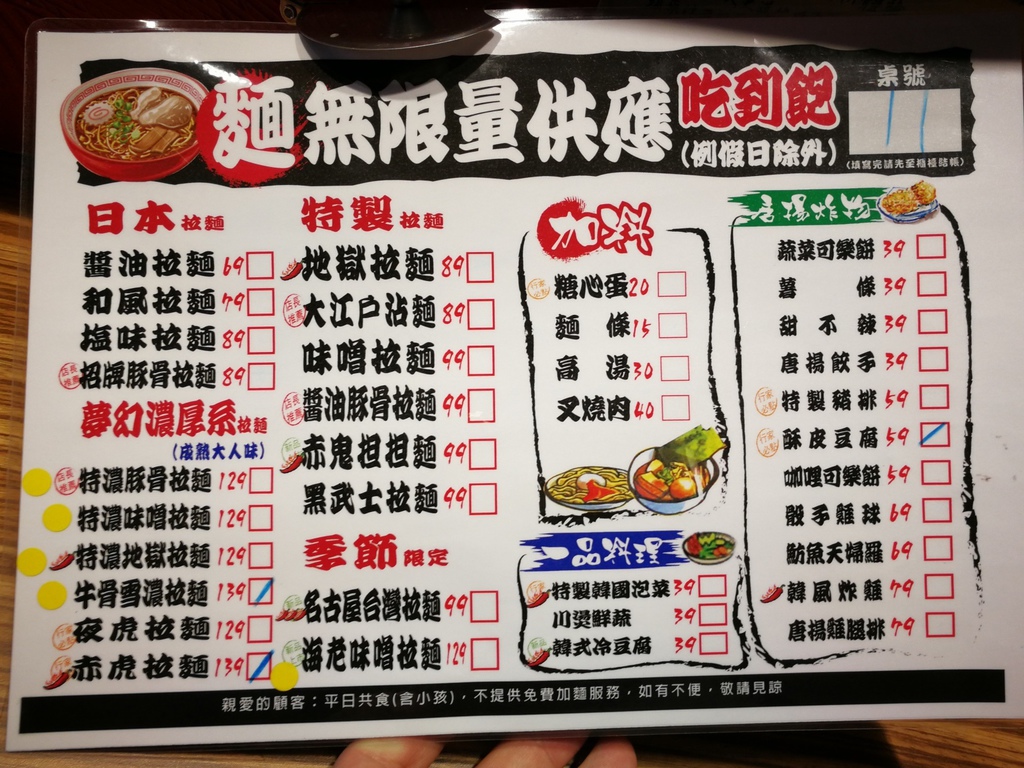 麵無限量供應吃到飽
(例假日除外)
桌號
(填寫完請先至櫃檯結帳)
日本拉麵
醬油拉麵 69
和風拉麵 79
塩味拉麵 89
店長推薦 招牌豚骨拉麵 89
夢幻濃厚系拉麵
(成熟大人味)
店長推薦 特濃豚骨拉麵 129
特濃味噌拉麵 129
特濃地獄拉麵 129
牛骨雪濃拉麵 139
行家必點 夜虎拉麵 129
行家必點 赤虎拉麵 139
特製拉麵
地獄拉麵 89
店長推薦 大江戶沾麵 89
味噌拉麵 99
店長推薦 醬油豚骨拉麵 99
新品 赤鬼担担麵 99
黑武士拉麵 99
季節限定
名古屋台灣拉麵 99
新品 海老味噌拉麵 129
加料
行家必點 糖心蛋 20
麵條 15
高湯 30
叉燒肉 40
一品料理
行家 特製韓國泡菜 39
川燙鮮蔬 39
新品 韓式冷豆腐 39
唐揚炸物
蔬菜可樂餅 39
薯條 39
甜不辣 39
唐揚餃子 39
行家必點 特製豬排 59
行家必點 酥皮豆腐 59
咖哩可樂餅 59
骰子雞球 69
魴魚天婦羅 69
韓風炸雞 79
唐揚雞腿排 79
親愛的顧客：平日共食(含小孩)，不提供免費加麵服務，如有不便，敬請見諒